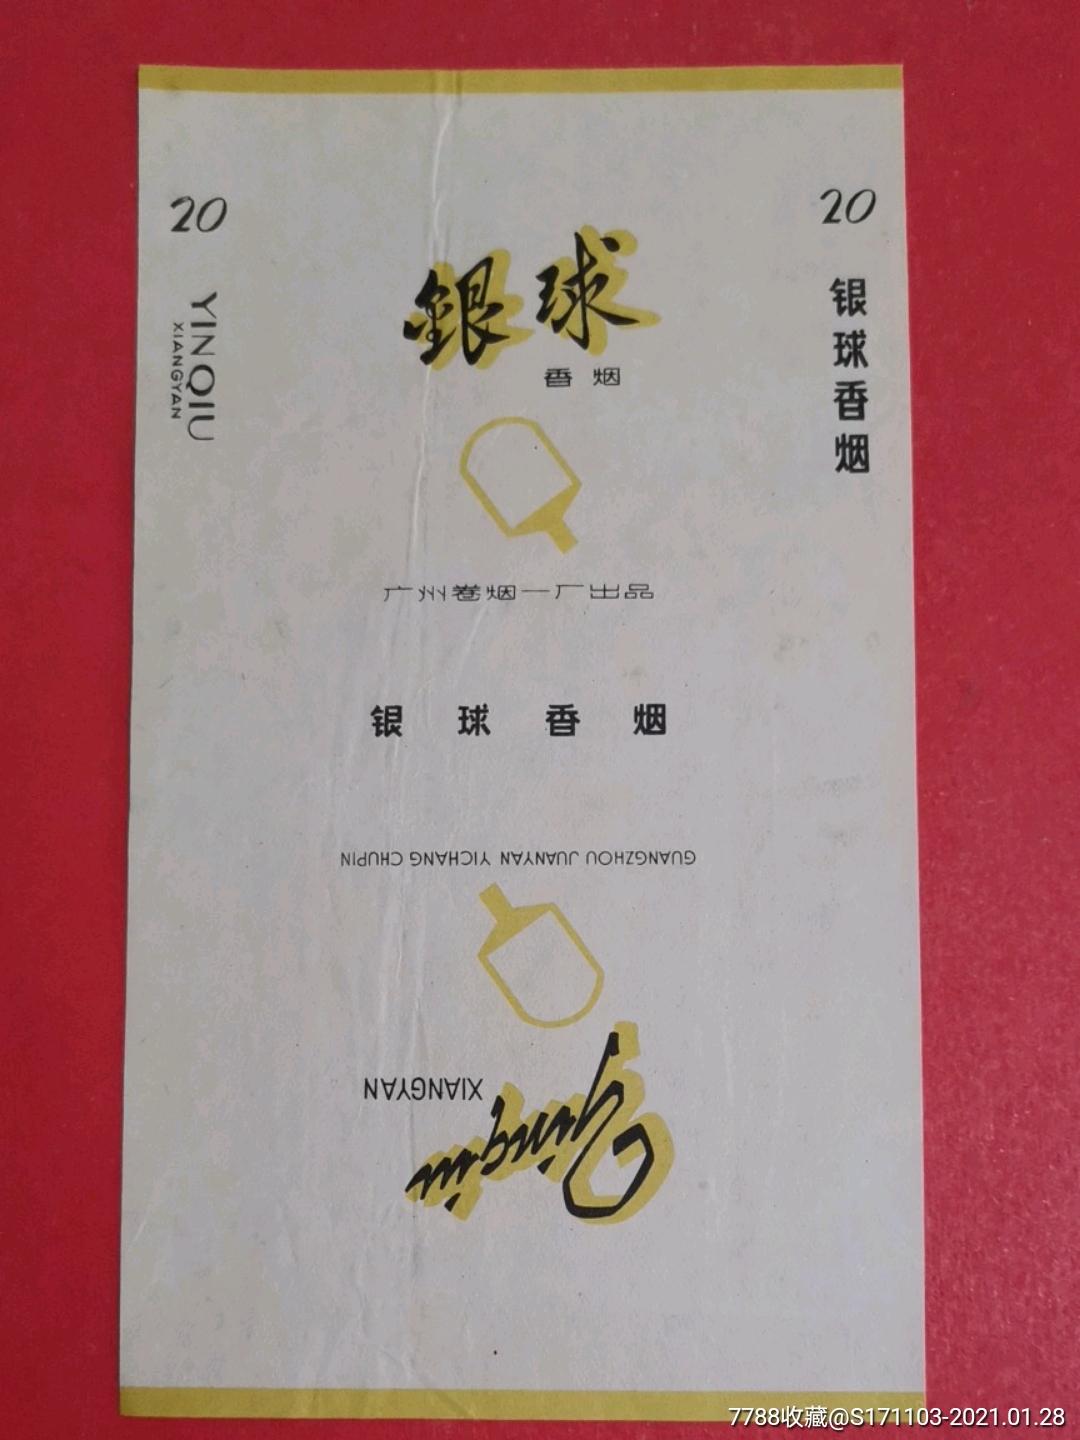 20
20
YINQIU
XIANGYAN
銀球
香烟
银球香烟
广州卷烟一厂出品
银球香烟
GUANGZHOU JUANYAN YICHANG CHUPIN
XIANGYAN
Yinqiu
7788收藏@S171103-2021.01.28